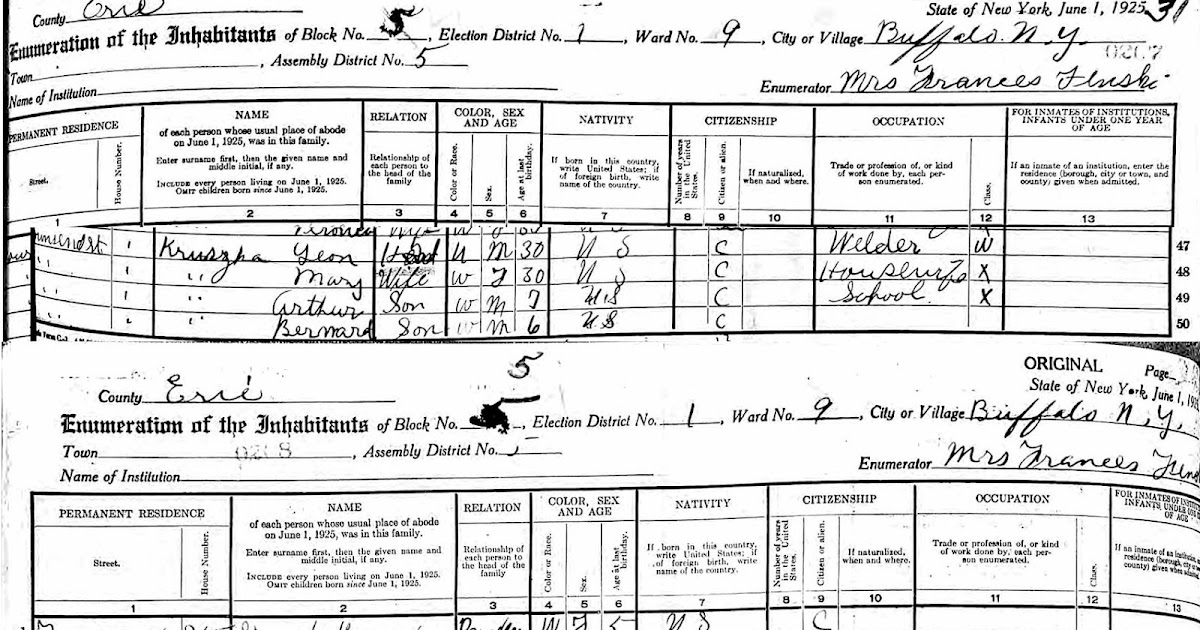 County Erie
State of New York, June 1, 1925
Enumeration of the Inhabitants of Block No. 5, Election District No. 1, Ward No. 9, City or Village Buffalo N.Y.
0207
Town , Assembly District No. 5
Enumerator Mrs Frances
Name of Institution
PERMANENT RESIDENCE
Street.
House Number.
NAME
of each person whose usual place of abode
on June 1, 1925, was in this family.
Enter surname first, then the given name and
middle initial, if any.
INCLUDE every person living on June 1, 1925.
OMIT children born since June 1, 1925.
RELATION
Relationship of
each person to
the head of the
family
COLOR, SEX
AND AGE
Color or Race.
Sex.
Age at last
birthday.
NATIVITY
If born in this country,
write United States; if
of foreign birth, write
name of the country.
CITIZENSHIP
Number of years
in the United
States.
Citizen or alien.
If naturalized,
when and where.
OCCUPATION
Trade or profession of, or kind
of work done by, each per-
son enumerated.
Class.
FOR INMATES OF INSTITUTIONS,
INFANTS UNDER ONE YEAR
OF AGE
If an inmate of an institution, enter the
residence (borough, city or town, and
county) given when admitted.
1 2 3 4 5 6 7 8 9 10 11 12 13
Leon Head W M 30 U S C Welder W 47
" Mary Wife W F 30 U S C Housewife X 48
" Arthur Son W M 7 U.S C School X 49
" Bernard Son W M 6 U.S C 50
5
ORIGINAL Page
County Erie
State of New York, June 1, 1925
Enumeration of the Inhabitants of Block No. , Election District No. 1, Ward No. 9, City or Village Buffalo N.Y.
Town 0208 , Assembly District No.
Enumerator Mrs Frances
Name of Institution
PERMANENT RESIDENCE
Street.
House Number.
NAME
of each person whose usual place of abode
on June 1, 1925, was in this family.
Enter surname first, then the given name and
middle initial, if any.
INCLUDE every person living on June 1, 1925.
OMIT children born since June 1, 1925.
RELATION
Relationship of
each person to
the head of the
family
COLOR, SEX
AND AGE
Color or Race.
Sex.
Age at last
birthday.
NATIVITY
If born in this country,
write United States; if
of foreign birth, write
name of the country.
CITIZENSHIP
Number of years
in the United
States.
Citizen or alien.
If naturalized,
when and where.
OCCUPATION
Trade or profession of, or kind
of work done by, each per-
son enumerated.
Class.
FOR INMATES OF INS
INFANTS UNDER ON
OF AG
If an inmate of an institution
residence (borough, city
county) given when ad
1 2 3 4 5 6 7 8 9 10 11 12 13
W F 5 U S C